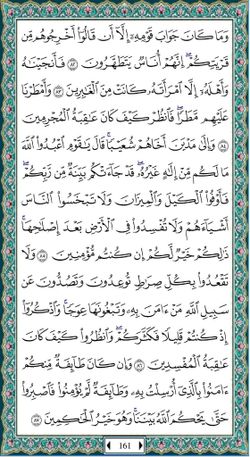 وَمَا كَانَ جَوَابَ قَوْمِهِۦٓ إِلَّآ أَن قَالُوٓا۟ أَخْرِجُوهُم مِّن
قَرْيَتِكُمْ ۖ إِنَّهُمْ أُنَاسٌ يَتَطَهَّرُونَ ﴿٨٢﴾ فَأَنجَيْنَٰهُ
وَأَهْلَهُۥٓ إِلَّا ٱمْرَأَتَهُۥ كَانَتْ مِنَ ٱلْغَٰبِرِينَ ﴿٨٣﴾ وَأَمْطَرْنَا
عَلَيْهِم مَّطَرًا ۖ فَٱنظُرْ كَيْفَ كَانَ عَٰقِبَةُ ٱلْمُجْرِمِينَ
﴿٨٤﴾ وَإِلَىٰ مَدْيَنَ أَخَاهُمْ شُعَيْبًا ۗ قَالَ يَٰقَوْمِ ٱعْبُدُوا۟ ٱللَّهَ
مَا لَكُم مِّنْ إِلَٰهٍ غَيْرُهُۥ ۖ قَدْ جَآءَتْكُم بَيِّنَةٌ مِّن رَّبِّكُمْ ۖ
فَأَوْفُوا۟ ٱلْكَيْلَ وَٱلْمِيزَانَ وَلَا تَبْخَسُوا۟ ٱلنَّاسَ
أَشْيَآءَهُمْ وَلَا تُفْسِدُوا۟ فِى ٱلْأَرْضِ بَعْدَ إِصْلَٰحِهَا ۚ
ذَٰلِكُمْ خَيْرٌ لَّكُمْ إِن كُنتُم مُّؤْمِنِينَ ﴿٨٥﴾ وَلَا
تَقْعُدُوا۟ بِكُلِّ صِرَٰطٍ تُوعِدُونَ وَتَصُدُّونَ عَن
سَبِيلِ ٱللَّهِ مَنْ ءَامَنَ بِهِۦ وَتَبْغُونَهَا عِوَجًا ۚ وَٱذْكُرُوٓا۟
إِذْ كُنتُمْ قَلِيلًا فَكَثَّرَكُمْ ۖ وَٱنظُرُوا۟ كَيْفَ كَانَ
عَٰقِبَةُ ٱلْمُفْسِدِينَ ﴿٨٦﴾ وَإِن كَانَ طَآئِفَةٌ مِّنكُمْ
ءَامَنُوا۟ بِٱلَّذِىٓ أُرْسِلْتُ بِهِۦ وَطَآئِفَةٌ لَّمْ يُؤْمِنُوا۟ فَٱصْبِرُوا۟
حَتَّىٰ يَحْكُمَ ٱللَّهُ بَيْنَنَا ۚ وَهُوَ خَيْرُ ٱلْحَٰكِمِينَ ﴿٨٧﴾
161